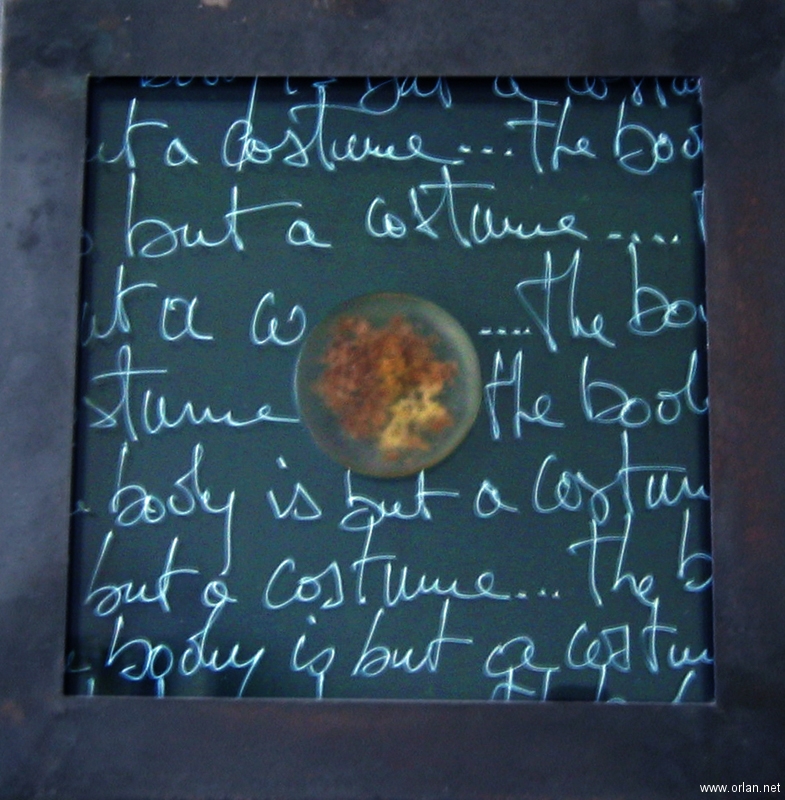 body is but a costum
ut a costume...The bod
but a costume....
ut a co ....The bod
stume the bod
body is but a costum
but a costume...the b
body is but a costum
www.orlan.net